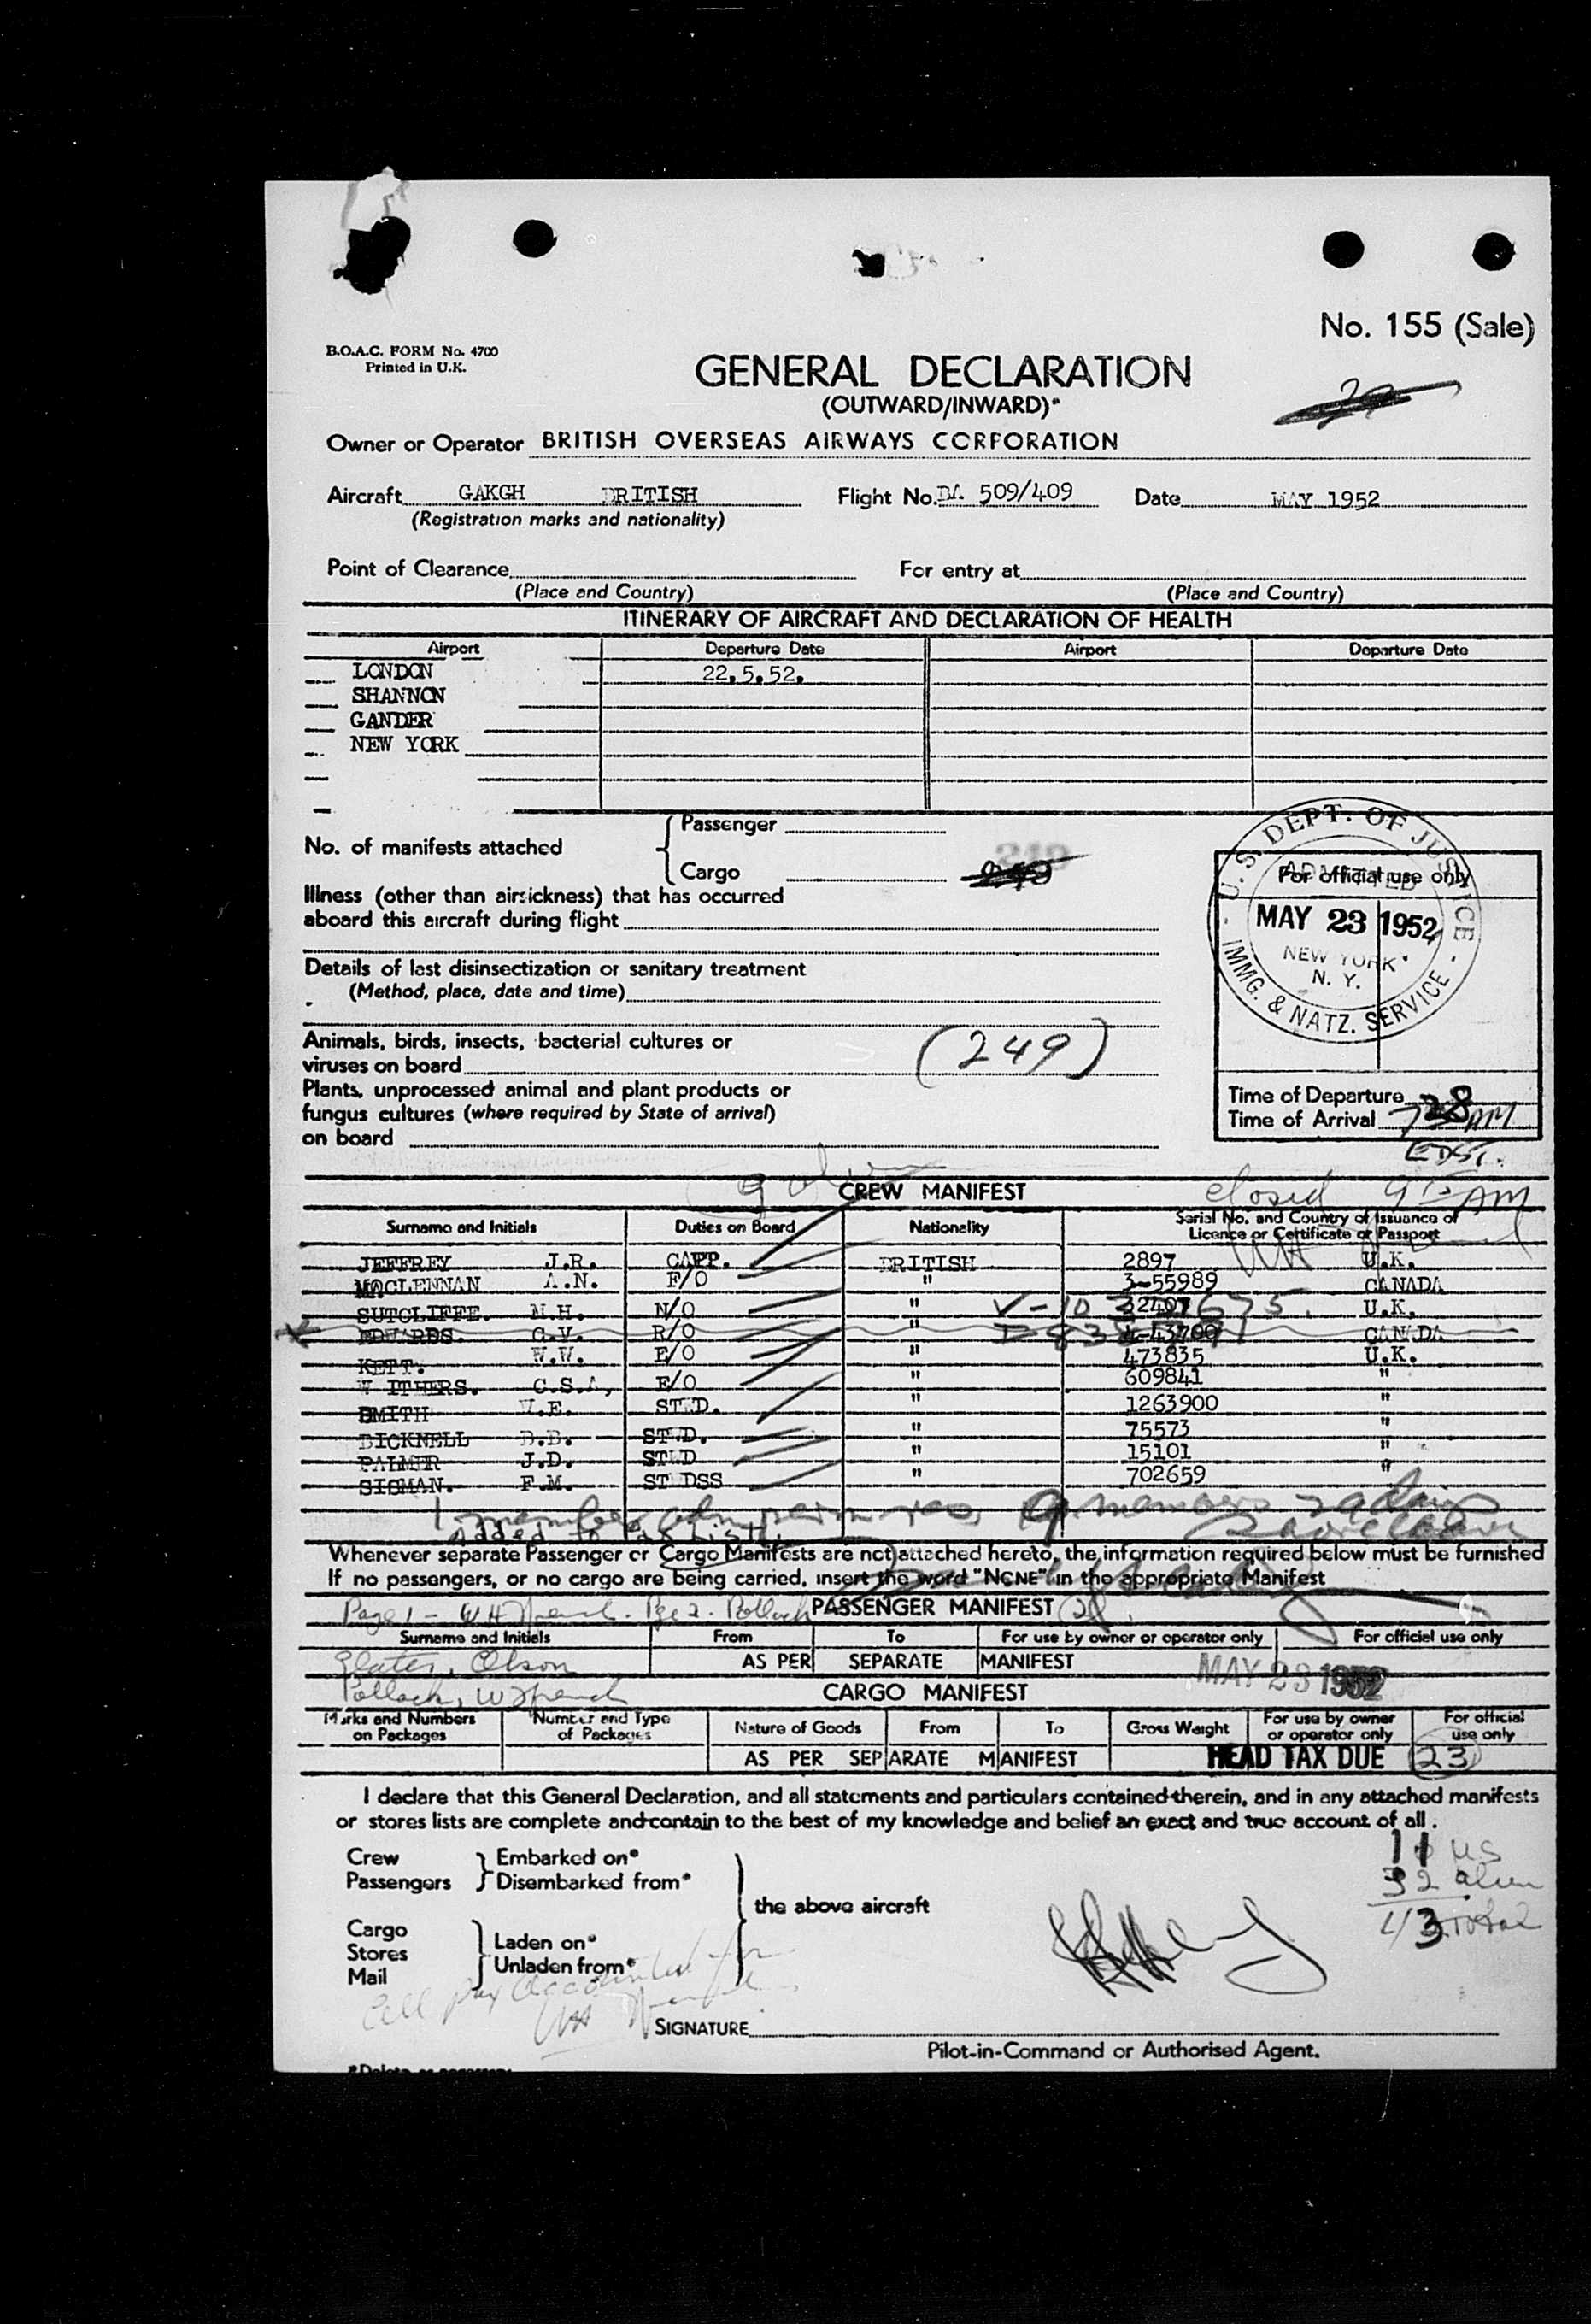 No. 155 (Sale)
B.O.A.C. FORM No. 4700
Printed in U.K.
GENERAL DECLARATION
(OUTWARD/INWARD)*
Owner or Operator BRITISH OVERSEAS AIRWAYS CORPORATION
Aircraft GAKGH BRITISH Flight No. BA 509/409 Date MAY 1952
(Registration marks and nationality)
Point of Clearance For entry at
(Place and Country) (Place and Country)
ITINERARY OF AIRCRAFT AND DECLARATION OF HEALTH
Airport Departure Date Airport Departure Date
LONDON 22.5.52.
SHANNON
GANDER
NEW YORK
No. of manifests attached
Passenger
Cargo
249
Illness (other than airsickness) that has occurred
aboard this aircraft during flight
Details of last disinsectization or sanitary treatment
(Method, place, date and time)
Animals, birds, insects, bacterial cultures or
viruses on board
(249)
Plants, unprocessed animal and plant products or
fungus cultures (where required by State of arrival)
on board
For official use only
U.S. DEPT. OF JUSTICE
ADMITTED
MAY 23 1952
NEW YORK
N. Y.
IMMG. & NATZ. SERVICE
Time of Departure
Time of Arrival 728 AM
EDST.
closed 9 15 AM
CREW MANIFEST
Surname and Initials Duties on Board Nationality Serial No. and Country of Issuance of
Licence or Certificate or Passport
JEFFREY J.R. CAPP. BRITISH 2897 U.K.
MACLENNAN A.N. F/O " 3-55989 CANADA
SUTCLIFFE. M.H. N/O " U.K.
EDWARDS. C.V. R/O " CANADA
KETT. W.W. E/O " 473835 U.K.
W ITHERS. C.S.A, E/O " 609841 "
SMITH W.E. STWD. " 1263900 "
BICKNELL D.D. STWD. " 75573 "
PALMER J.D. STWD " 15101 "
SISMAN. F.M. STWDSS " 702659 "
Added to
Whenever separate Passenger or Cargo Manifests are not attached hereto, the information required below must be furnished
If no passengers, or no cargo are being carried, insert the word "NONE" in the appropriate Manifest
Page 1 - Pge 2. Pollack PASSENGER MANIFEST
Surname and Initials From To For use by owner or operator only For official use only
Olson AS PER SEPARATE MANIFEST
MAY 23 1952
Pollack, CARGO MANIFEST
Marks and Numbers on Packages Number and Type of Packages Nature of Goods From To Gross Weight For use by owner or operator only For official use only
AS PER SEPARATE MANIFEST
HEAD TAX DUE 23
I declare that this General Declaration, and all statements and particulars contained therein, and in any attached manifests
or stores lists are complete and contain to the best of my knowledge and belief an exact and true account of all.
11 US
32 alien
43 Total
Crew
Passengers
Embarked on*
Disembarked from*
the above aircraft
Cargo
Stores
Mail
Laden on*
Unladen from*
All pax accounted for
SIGNATURE
Pilot-in-Command or Authorised Agent.